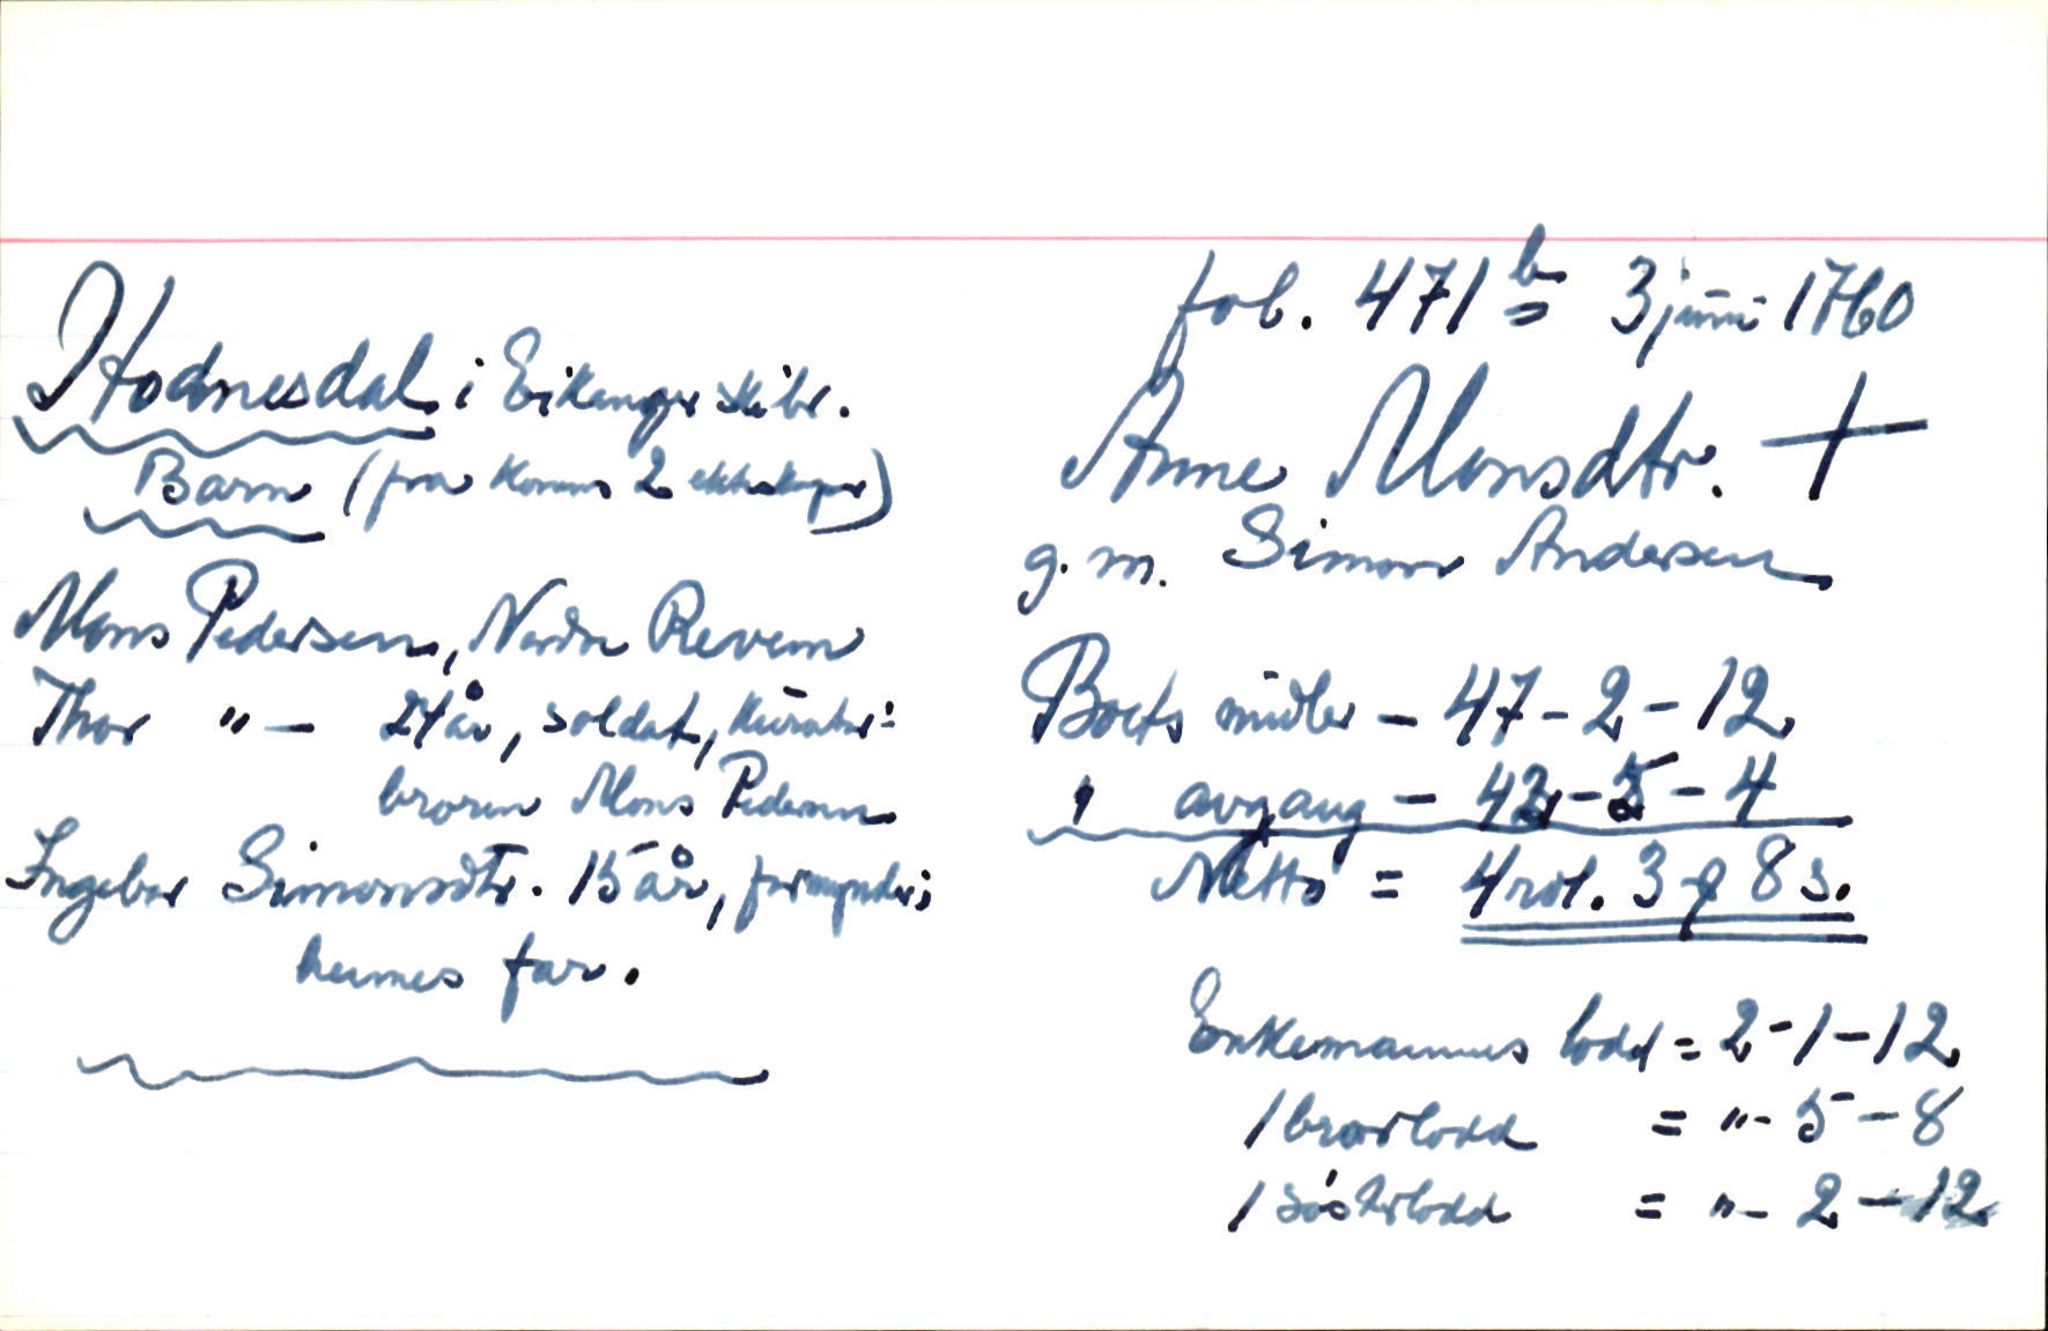 Hodnesdal i Eikanger skibr.
Barn (fra konens 2 ekteskaper)
Mons Pedersen, Nordre Revem
Thor " — 24 år, soldat, kurator:
broren Mons Pedersen
Ingebor Simonsdtr. 15 år, formynder;
hennes far.
fol. 471 b 3 juni 1760
Anne Monsdtr. †
g. m. Simon Andersen
Boets midler — 47 - 2 - 12
" avgang — 42 - 5 - 4
Netto = 4 rdl. 3 ƒ 8 s.
Enkemannens lodd = 2 - 1 - 12
1 brorlodd = " - 5 - 8
1 søsterlodd = " - 2 - 12